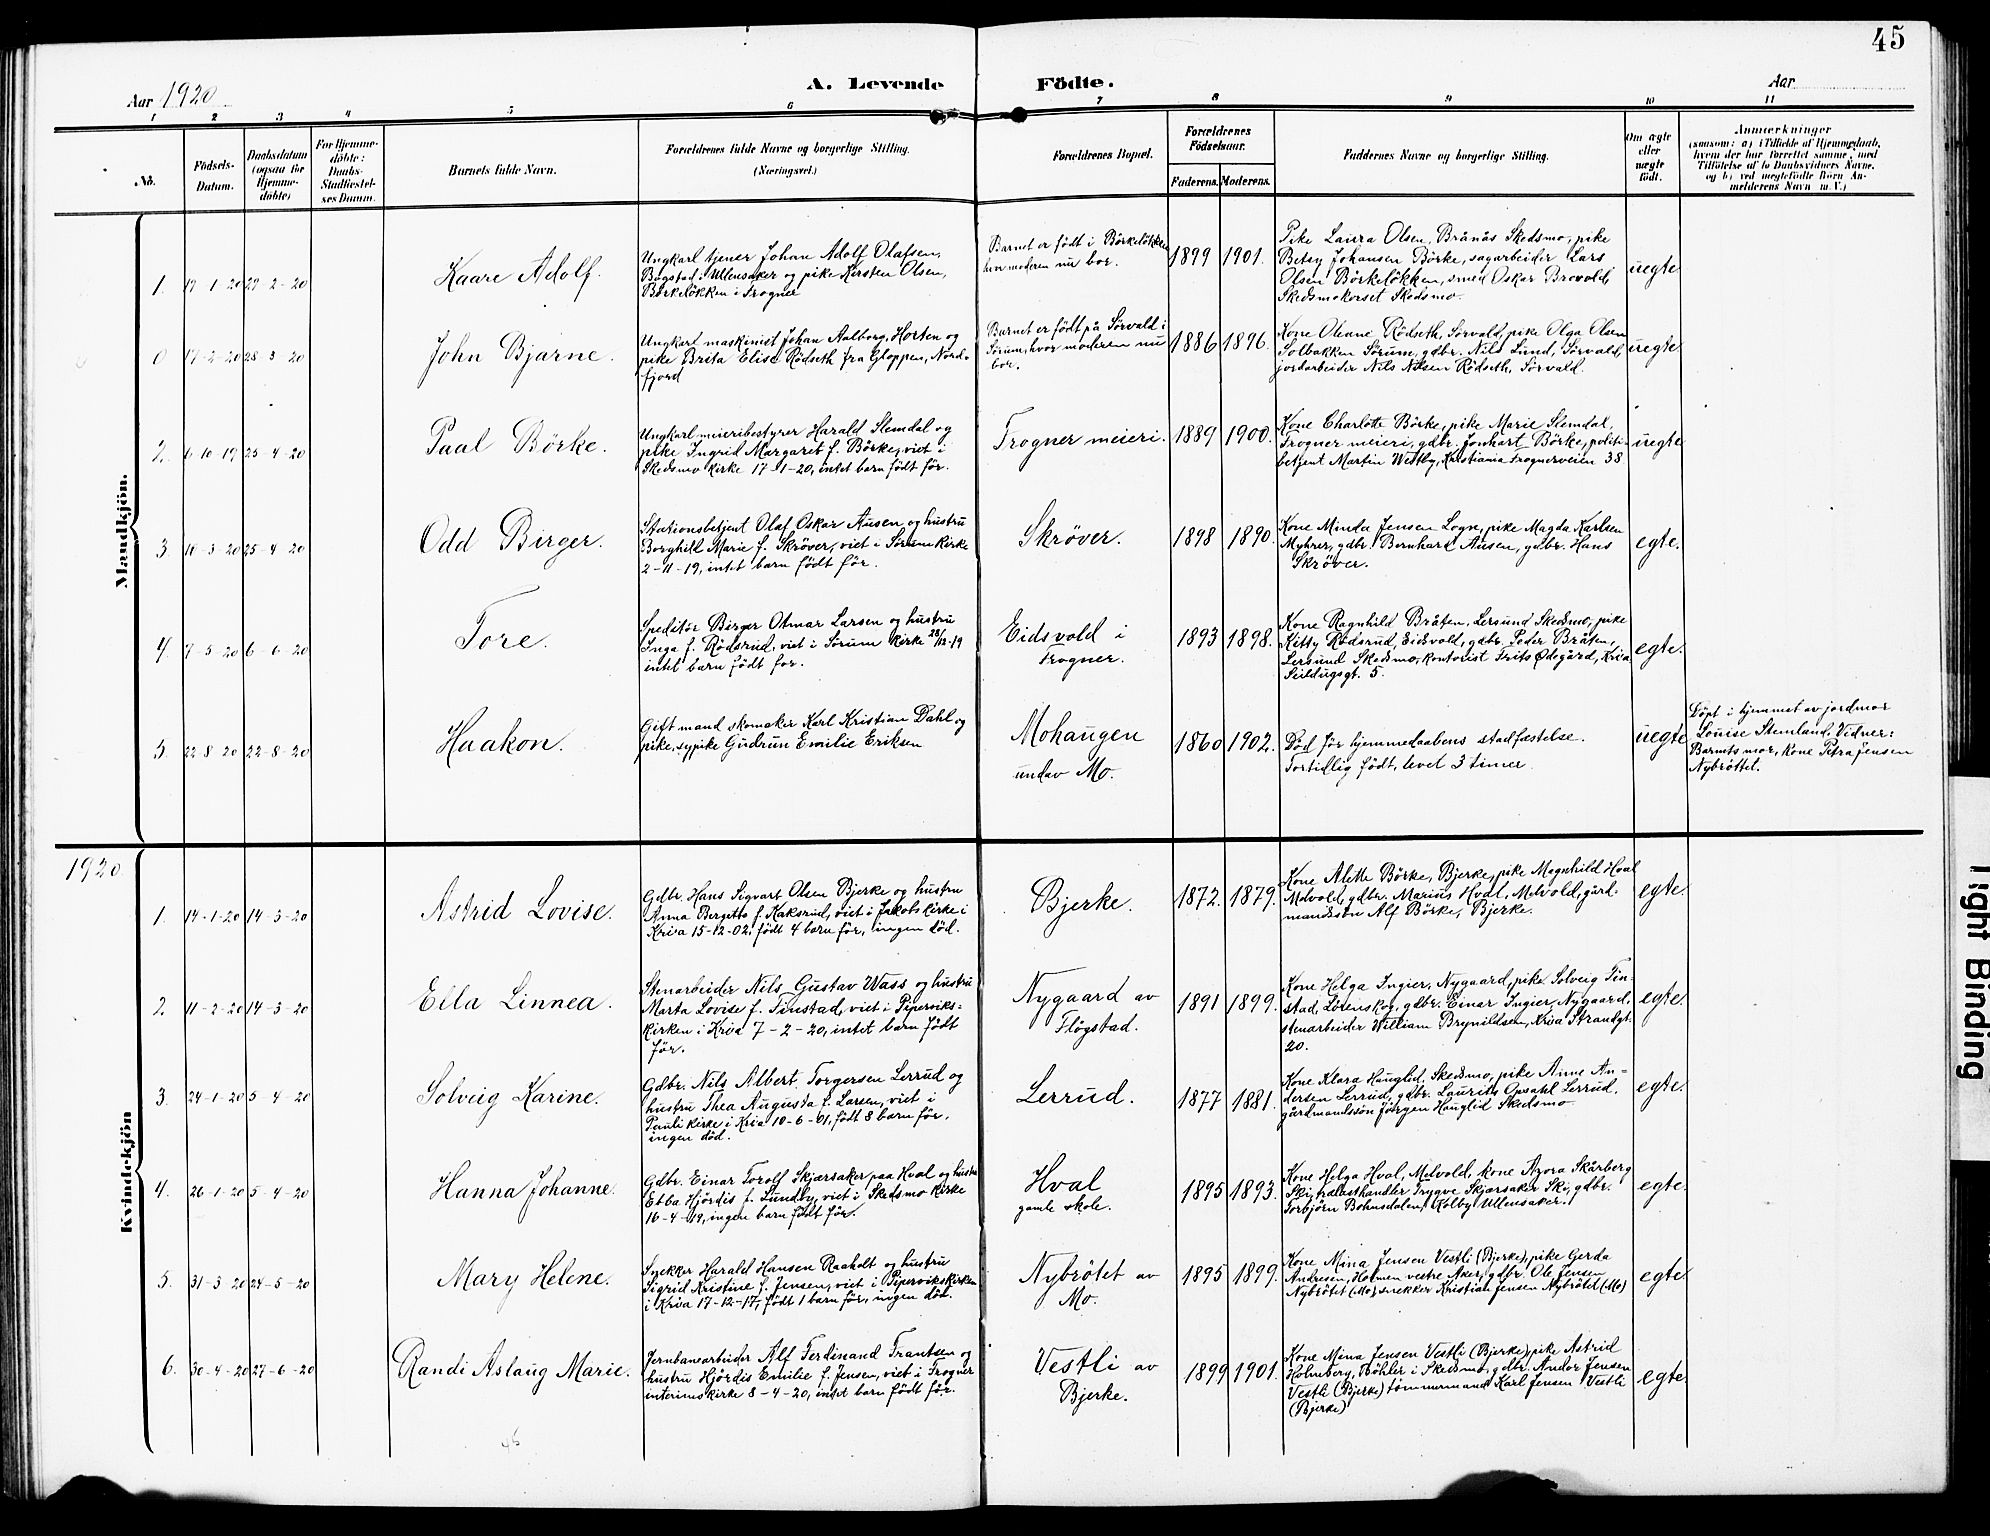 45
Aar 1920
A. Levende
Födte.
Aar
1 2 3 4 5 6 7 8 9 10 11
No.
Födsels-
Datum.
Daabsdatum
(ogsaa for
Hjemme-
döbte)
For Hjemme-
döbte:
Daabs-
Stadfæstel-
ses Datum.
Barnets fulde Navn.
Forældrenes fulde Navne og borgerlige Stilling.
(Næringsvei.)
Forældrenes Bopæl.
Forældrenes
Födselsaar.
Faderens. Moderens.
Faddernes Navne og borgerlige Stilling.
Om ægte
eller
uægte
födt.
Anmærkninger
(saasom: a) i Tilfælde af Hjemmedaab,
hvem der har forrettet samme, med
Tilföielse af to Daabsvidners Navne,
og b) ved uægtefödte Börn An-
melderens Navn m. V.)
Mandkjön.
1. 17-1-20 27-2-20
Kaare Adolf.
Ungkarl tjener Johan Adolf Olafsen,
Bogstad i Ullensaker og pike Kirsten Olsen,
Börkelökken i Frogner
Barnet er född i Börkelökken
hvor moderen nu bor.
1899 1901.
Pike Laura Olsen, Brånås Skedsmo, pike
Betsy Johansen Börke, sagarbeider Lars
Olsen Börkelökken, smed Oskar Brovold,
Skedsmokorset Skedsmo.
uegte
0 17-2-20 28-3-20
John Bjarne.
Ungkarl maskinist Johan Aalborg, Horten og
pike Brita Elise Rödseth fra Gloppen, Nord-
fjord
Barnet er född på Sörvald i
Sörum, hvor moderen nu
bor.
1886 1896.
Kone Oleane Rödseth, Sörvald, pike Olga Olsen
Solbakken Sörum, gdbr. Nils Lund, Sörvald,
jordarbeider Nils Nilsen Rödseth, Sörvald.
uegte
2. 6-10-19 25-4-20
Paal Börke.
Ungkarl meieribestyrer Harald Slemdal og
pike Ingrid Margaret f. Börke, viet i
Skedsmo kirke 17-1-20, intet barn född för.
Frogner meieri.
1889 1900.
Kone Charlotte Börke, pike Marie Slemdal,
Frogner meieri, gdbr. Jonhart Börke, politi-
betjent Martin Westby, Kristiania Frognerveien 38
uegte
3. 18-3-20 25-4-20
Odd Birger.
Stationsbetjent Olaf Oskar Ausen og hustru
Borghill Marie f. Skröver, viet i Sörum kirke
2-11-19, intet barn född för.
Skröver.
1898 1890.
Kone Minda Jensen Logn, pike Magda Karlsen
Myhrer, gdbr. Bernhard Ausen, gdbr. Hans
Skröver.
egte.
4. 7-5-20 6-6-20
Tore.
Speditör Birger Otmar Larsen og hustru
Inga f. Rödsrud, viet i Sörum kirke 28/12-19
intet barn född för.
Eidsvold i
Frogner.
1893 1898.
Kone Ragnhild Bråten, Lersund Skedsmo, pike
Kitty Rödsrud, Eidsvold, gdbr. Peder Bråten,
Lersund Skedsmo, kontorist Frits Ødegård, Kria
Seildugsgt. 5.
egte.
5. 22-8-20 22-8-20
Haakon.
Gift mand skomaker Karl Kristian Dahl og
pike, sypike Gudrun Emilie Eriksen
Mohaugen
undav Mo.
1860 1902.
Död för hjemmedaabens stadfæstelse.
Fortidlig född, level 3 timer.
uegte
Döpt i hjemmet av jordmor
Louise Stemland, Vidner:
Barnets mor, kone Petra Jensen
Nybröttet.
1920
Kvindekjön
1. 14-1-20 14-3-20
Astrid Lovise.
Gdbr. Hans Sigvart Olsen Bjerke og hustru
Anna Bergette f. Kaksrud, viet i Jakobs kirke i
Kria 15-12-02, född 4 barn för, ingen död.
Bjerke.
1872. 1879.
Kone Alette Börke, Bjerke, pike Magnhild Hval
Melvold, gdbr. Marius Hval, Melvold, gård-
mandssön Alf Börke, Bjerke.
egte.
2. 11-2-20 14-3-20
Ella Linnea.
Stenarbeider Nils Gustav Wass og hustru
Marta Lovise f. Finstad, viet i Piperviks-
kirken i Kria 7-2-20, intet barn född
för.
Nygaard av
Flögstad.
1891 1899.
Kone Helga Ingier, Nygaard, pike Solveig Fin-
stad, Lörenskog, gdbr. Einar Ingier, Nygaard,
stenarbeider William Brynildsen, Kria Strandgt.
20.
egte.
3. 24-1-20 5-4-20
Solveig Karine.
Gdbr. Nils Albert Torgersen Lerrud og
hustru Thea Augusta f. Larsen, viet i
Pauli kirke i Kria 10-6-01, född 8 barn för,
ingen död.
Lerrud.
1877 1881.
Kone Klara Hauglid, Skedsmo, pike Anne An-
dersen Lerrud, gdbr. Laurits Opsahl Lerrud.
gårdmandssön Jörgen Hauglid Skedsmo
egte.
4. 26-1-20 5-4-20
Hanna Johanne.
Gdbr. Einar Torolf Skjærsaker paa Hval og hustru
Ebba Hjördis f. Lundby, viet i Skedsmo kirke
16-4-19, ingen barn född för.
Hval
gamle skole.
1895 1893.
Kone Helga Hval, Melvold, kone Azora Skårberg
Ski, trælasthandler Trygve Skjærsaker Ski, gdbr.
Torbjörn Bohnsdalen, Kolby Ullensaker.
egte.
5. 31-3-20 24-5-20
Mary Helene.
Snekker Harald Hansen Raaholt og hustru
Sigrid Kristine f. Jensen, viet i Pipervikskirken
i Kria 17-12-17, född 1 barn för, ingen död.
Nybrötet av
Mo.
1895 1899.
Kone Mina Jensen Vestli (Bjerke), pike Gerda
Andresen, Holmen vestre Aker, gdbr. Ole Jensen
Nybrötet (Mo), snekker Kristian Jensen Nybrötet (Mo)
egte.
6. 30-4-20 27-6-20
Randi Aslaug Marie.
Jernbanearbeider Alf Ferdinand Frantsen og
hustru Hjördis Emilie f. Jensen, viet i Frogner
interimskirke 8-4-20, intet barn född för.
Vestli av
Bjerke.
1899 1901.
Kone Mina Jensen Vestli (Bjerke), pike Astrid
Holmberg, Böhler i Skedsmo, gdbr. Andor Jensen
Vestli (Bjerke) tömmermand Karl Jensen Vestli
(Bjerke)
egte.
45
Tight Binding